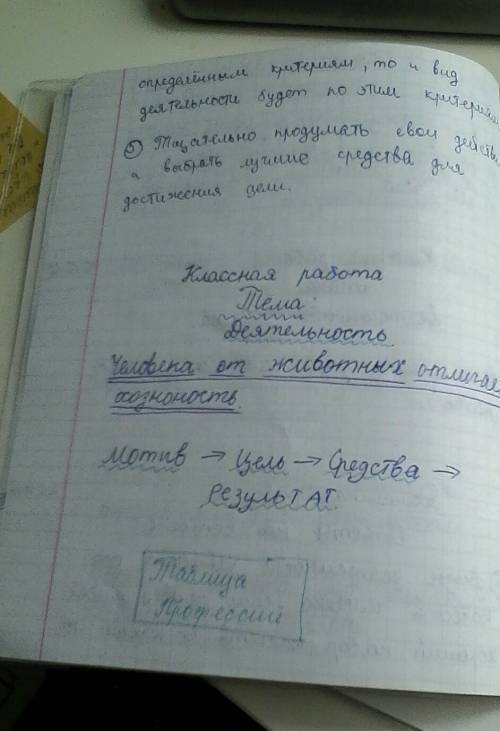 определённым критериям, то и вид
деятельности будет по этим критериям
⑤ Тщательно продумать свои действ.
и выбрать лучшие средства для
достижения цели.
Классная работа
Тема:
Деятельность
Человека от животных отличае
осозноность.
Мотив → Цель → Средства →
РЕЗУЛЬТАТ.
Таблица
Профессий